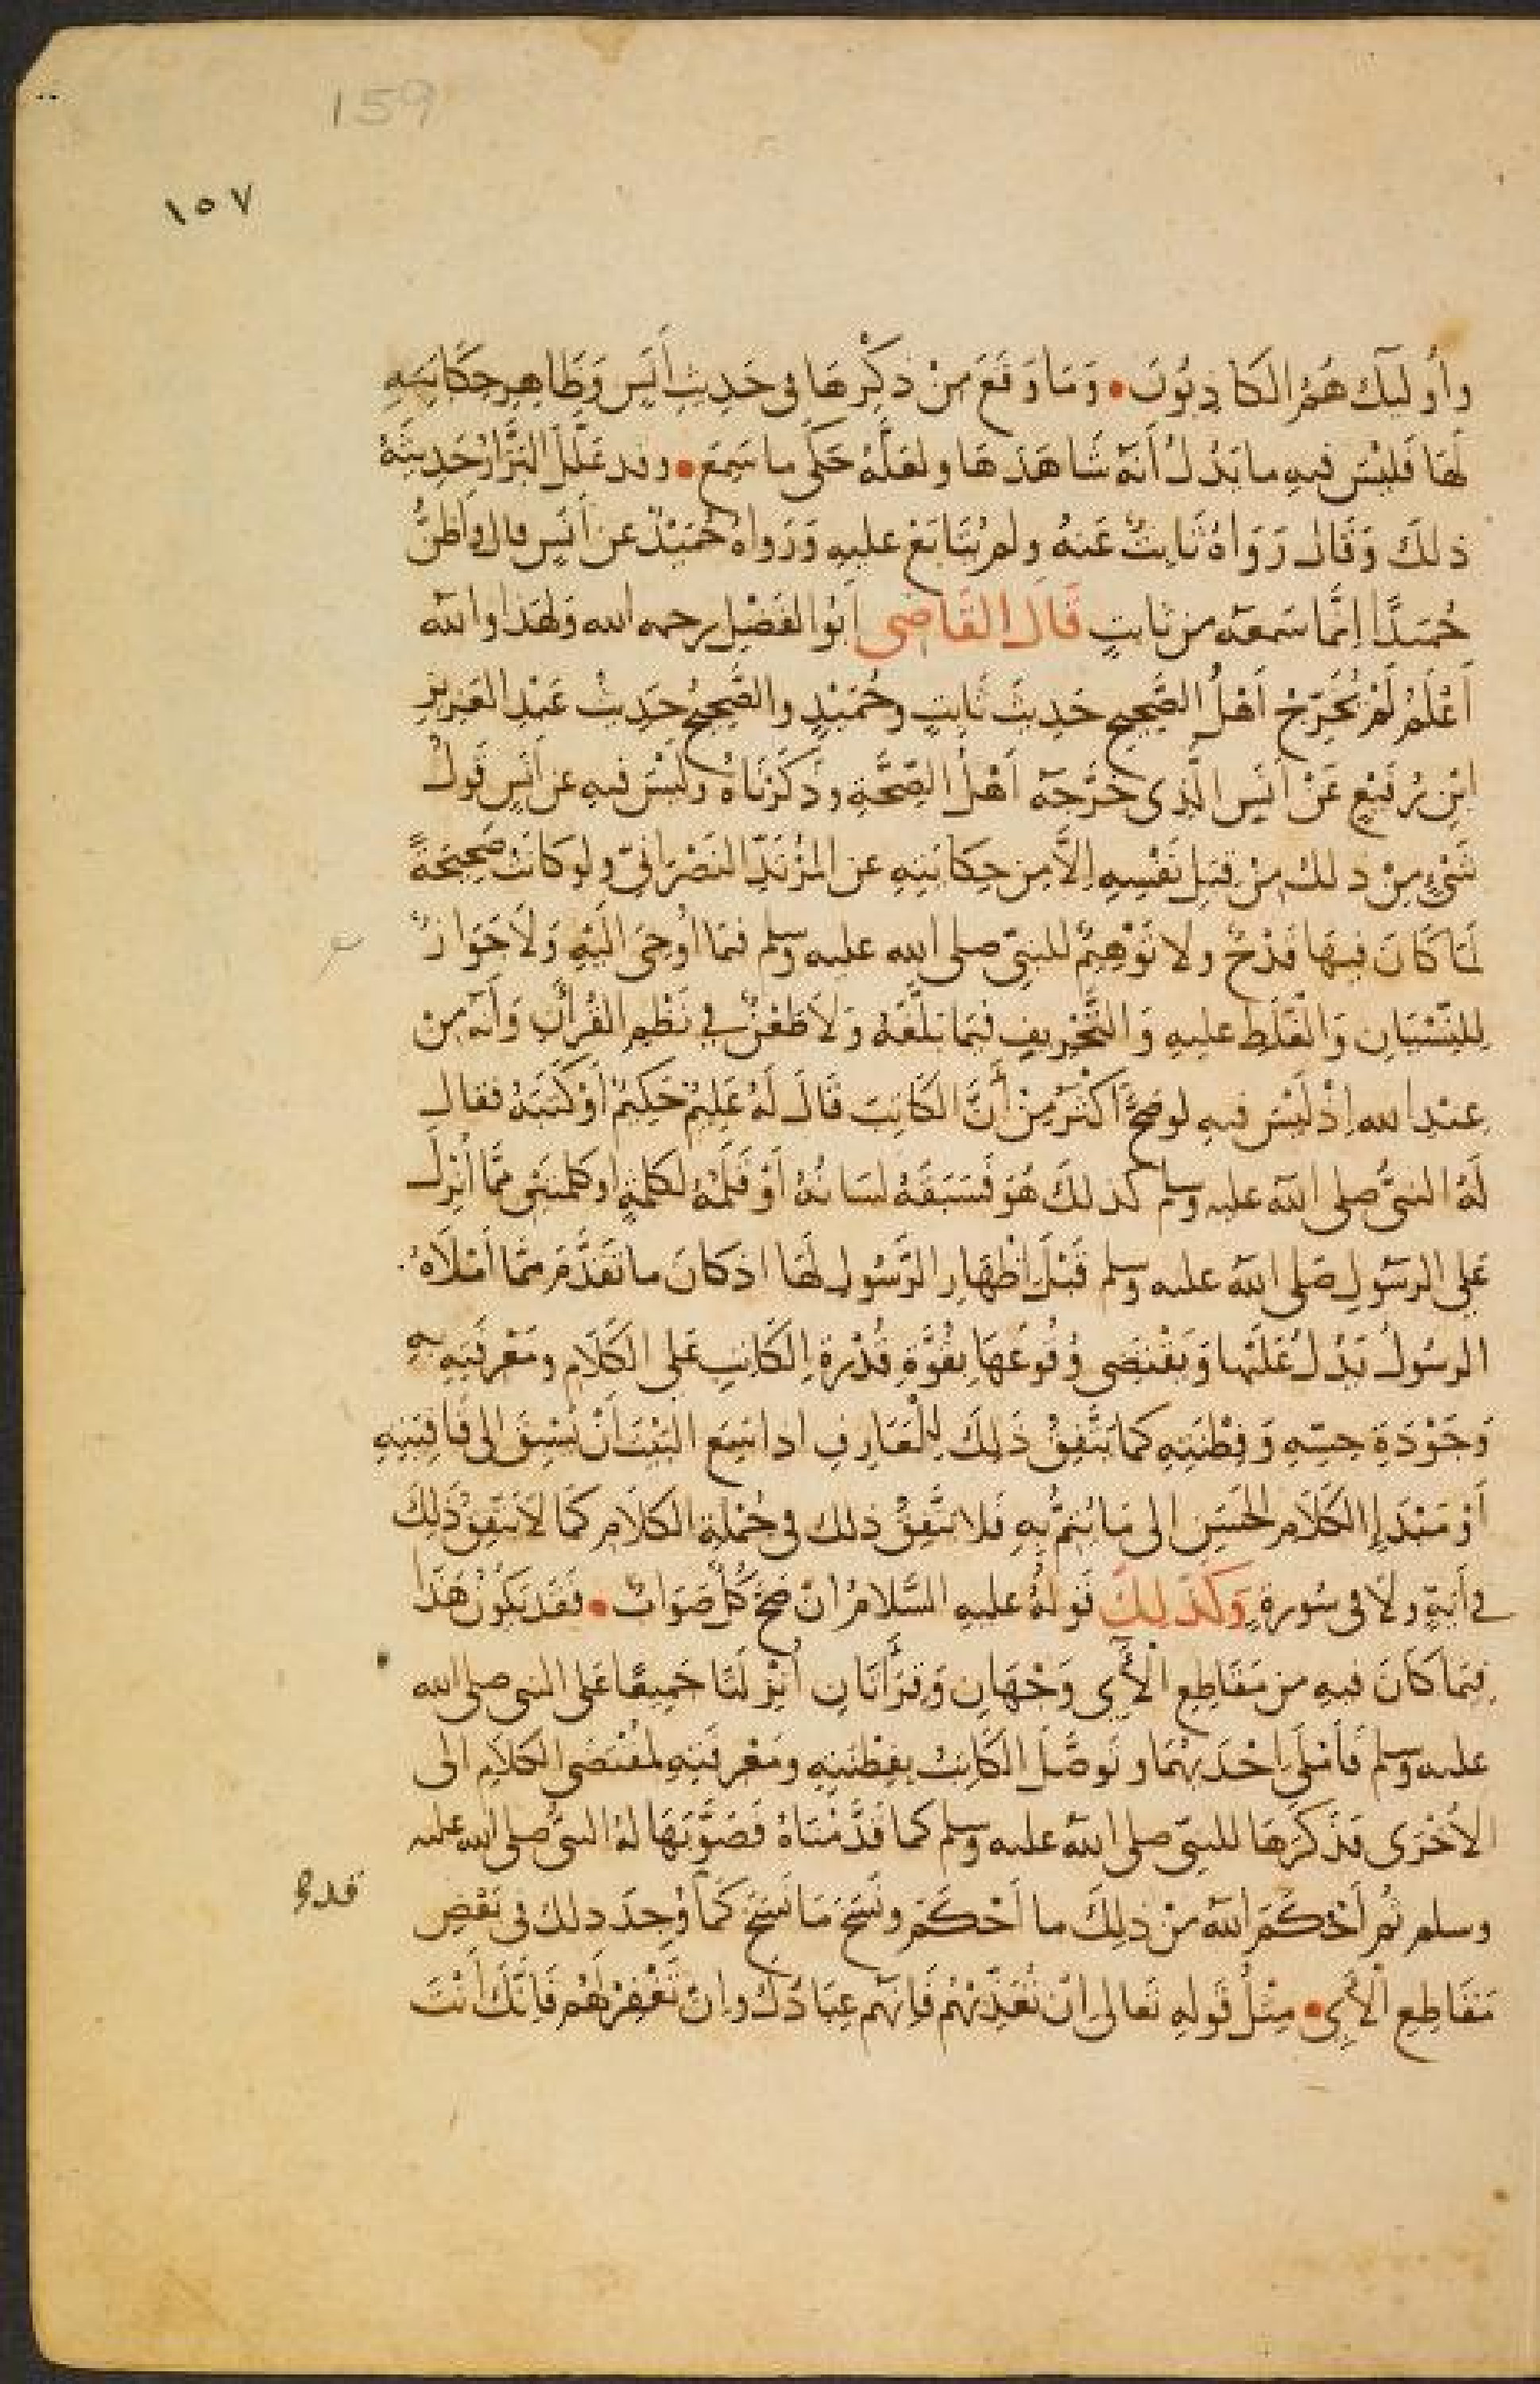 159
١٥٧
وأُولَيِكَ هُمُ الكَاذِبُونَ • وَمَا وَقَعَ مِنْ ذِكْرِهَا فى حَدِيثِ أَنَسٍ وَظَاهِرِ حِكَايَتِهِ
لَهَا فَلَيْسَ فيهِ ما يَدُلُّ أَنَّهُ شَاهَدَهَا ولعَلَّهُ حَكَى ما سَمِعَ • وقد عَلَّلَ البَزَّارُ حَدِيثَهُ
ذلكَ وَقَالَ رَوَاهُ ثَابِتٌ عَنهُ ولم يُتَابَعْ عليهِ وَرَواهُ حُمَيْدٌ عن أَنَسٍ قال وأَظُنُّ
حُمَيْدًا إنَّما سَمعَهُ من ثابتٍ قَالَ القَاضِى أَبُو الفَضْلِ رحمه الله وَلهَذا واللهُ
أَعْلَمُ لَمْ يُخَرِّجْ أَهْلُ الصَّحِيحِ حَدِيثَ ثَابِتٍ وحُمَيْدٍ والصَّحِيحُ حَدِيثُ عَبْدِ العَزِيزِ
ابْنِ رُفَيْعٍ عَنْ أَنَسٍ الَّذِى خَرَّجَهُ أَهْلُ الصِّحَّةِ وذَكَرْنَاهُ وَلَيْسَ فيهِ عن أَنَسٍ قَولُ
شَىْءٍ مِنْ ذلكَ مِنْ قِبَلِ نَفْسِهِ إلَّا مِن حِكَايَتِهِ عن المُرْتَدِّ النَّصْرَانِىِّ ولو كَانَتْ صَحِيحَةً
لَمَا كَانَ فِيهَا قَدْحٌ ولا تَوْهِيمٌ للنبىِّ صلى الله عليه وسلم فيمَا أُوحِىَ اليْهِ وَلَا جَوَازٌ
لِلنِّسْيَانِ وَالْغَلَطِ عليهِ وَالتَّحْرِيفِ فيمَا بَلَّغَهُ وَلَا طَعْنٌ فى نَظْمِ القُرْأَنِ وَأَنَّهُ مِنْ
عِنْدِ الله إذْ لَيْسَ فيهِ لو صَحَّ أَكْثَرُ مِنْ أَنَّ الكَاتِبَ قَالَ لَهُ عَلِيمٌ حَكِيمٌ أَوْ كَتَبَهُ فقال
لَهُ النبىُّ صلى الله عليه وسلم كذلكَ هُوَ فَسَبَقَهُ لسَانُهُ أَوْ قَلَمُهُ لكَلِمَةٍ أوكلمتَيْنِ مِمَّا أُنْزِلَ
عَلى الرسَولِ صَلى اللهُ عليه وسلم قَبْلَ اظْهَارِ الرَّسُولِ لَهَا اذ كانَ ما تَقَدَّمَ مِمَّا أَمْلَاهُ
الرسُولُ يَدُلُّ عَلَيْها وَيَقْتَضِى وُقُوعَهَا بقُوَّةِ قُدْرَةِ الكَاتِبِ عَلى الكَلَامِ ومَعْرِفَتِهِ بهِ
وَجَوْدَةِ حِسِّهِ وَفِطْنَتِهِ كما يَتَّفِقُ ذَلِكَ لِلْعَارِفِ اذا سَمِعَ البَيْتَ أَنْ يَسْبِقَ الى قَافِيَتِهِ
أَوْ مَبْدَإِ الكَلَامِ الحَسَنِ الى مَا يُتِمُّ بِهِ فَلا يتَّفِقُ ذلك فى جُمْلَةِ الكلَامِ كَمَا لَا يَتَّفِقُ ذَلِكَ
فى أَيَةٍ ولَا فى سُورةٍ وَكَذَلِكَ قَولُهُ عليهِ السَّلامُ ان صَحَّ كُلٌّ صَوَابٌ • فَقَد يَكُونُ هَذَا
فِيمَا كانَ فيهِ من مَقَاطِعِ الْأَىِ وَجْهَانِ وَقِرَأَتَانِ أُنْزِلَتَا جَمِيعًا عَلى النبى صلى الله
عليه وسلم فَأَمْلَى احْدَيهُمَا وتَوصَّلَ الكَاتِبُ بفِطْنَتِهِ ومَعْرِفَتِهِ لمقْتَضَى الكلَامِ الى
الأُخْرَى فذَكَرَهَا للنبىِّ صلى الله عليه وسلم كما قَدَّمْنَاهُ فَصَوَّبَهَا لهُ النبىُّ صلى الله عليه
وسلم ثُم أَحْكَمَ اللهُ مِنْ ذلِكَ ما أَحْكَمَ ونَسَخَ مَا نَسَخَ كَمَا وُجِدَ ذلكَ فى بَعْضِ
مَقَاطِعِ الْأَىِ • مِثْلُ قَولِهِ تَعالى ان تُعَذِّبْهُمْ فَإِنَّهُم عِبَادُكَ وان تَغْفِرْ لَهُم فَإِنَّكَ أَنْتَ